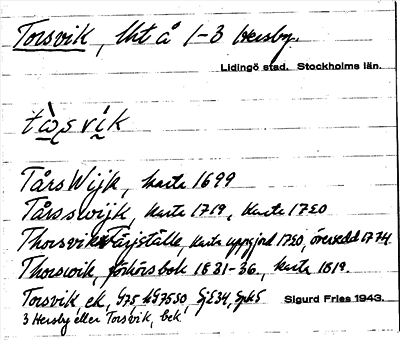 Torsvik, lht å 1-3 Hersby.
Lidingö stad. Stockholms län.
tɷ̀ʂvík
TårsWijk, karta 1699
Tårsswijk, karta 1719, karta 1720
Thorsviks Färjställe, karta uppgjord 1720, översedd 1774
Thorsvik, förhörsbok 1831-36, karta 1819.
Torsvik ek, G75
Sigurd Fries 1943.
3 Hersby eller Torsvik, bek